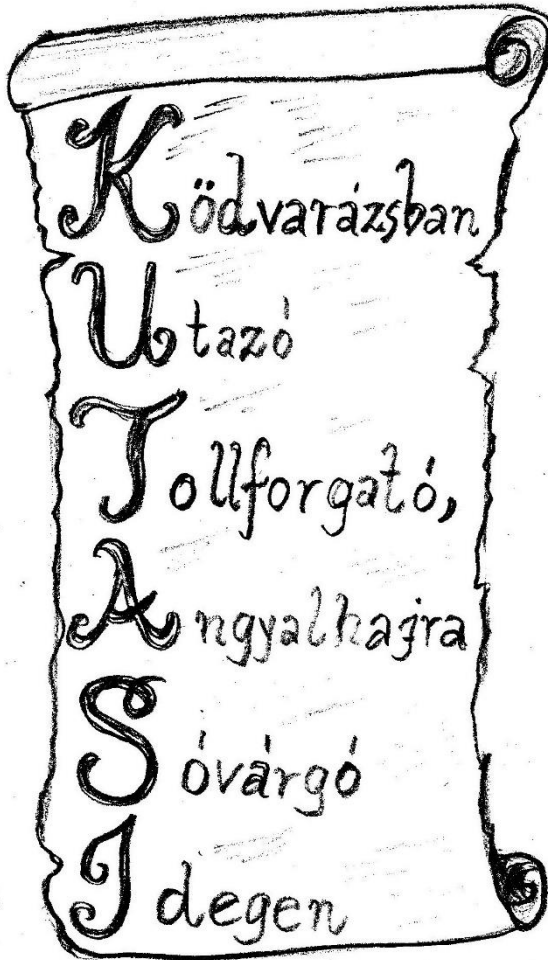 Ködvarázsban
Utazó
Tollforgató,
Angyalhajra
Sóvárgó
Idegen